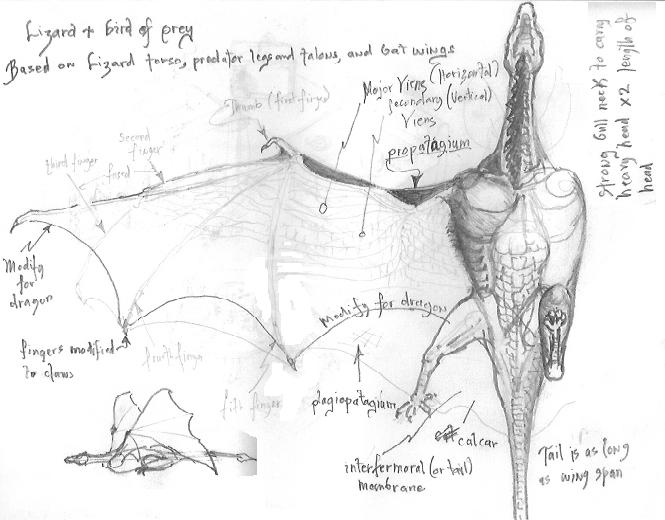 Lizard + bird of prey
Based on Lizard torso, predator legs and talons, and bat wings
Thumb (first finger)
Major Viens (Horizontal)
secondary (Vertical)
Viens
propatagium
second
finger
fused
third finger
strong bull neck to carry
heavy head x2 length of
head
Modify
for
dragon
fingers modified
to claws
fourth finger
fifth finger
modify for dragon
plagiopatagium
calcar
interfermoral (or tail)
membrane
Tail is as long
as wing span